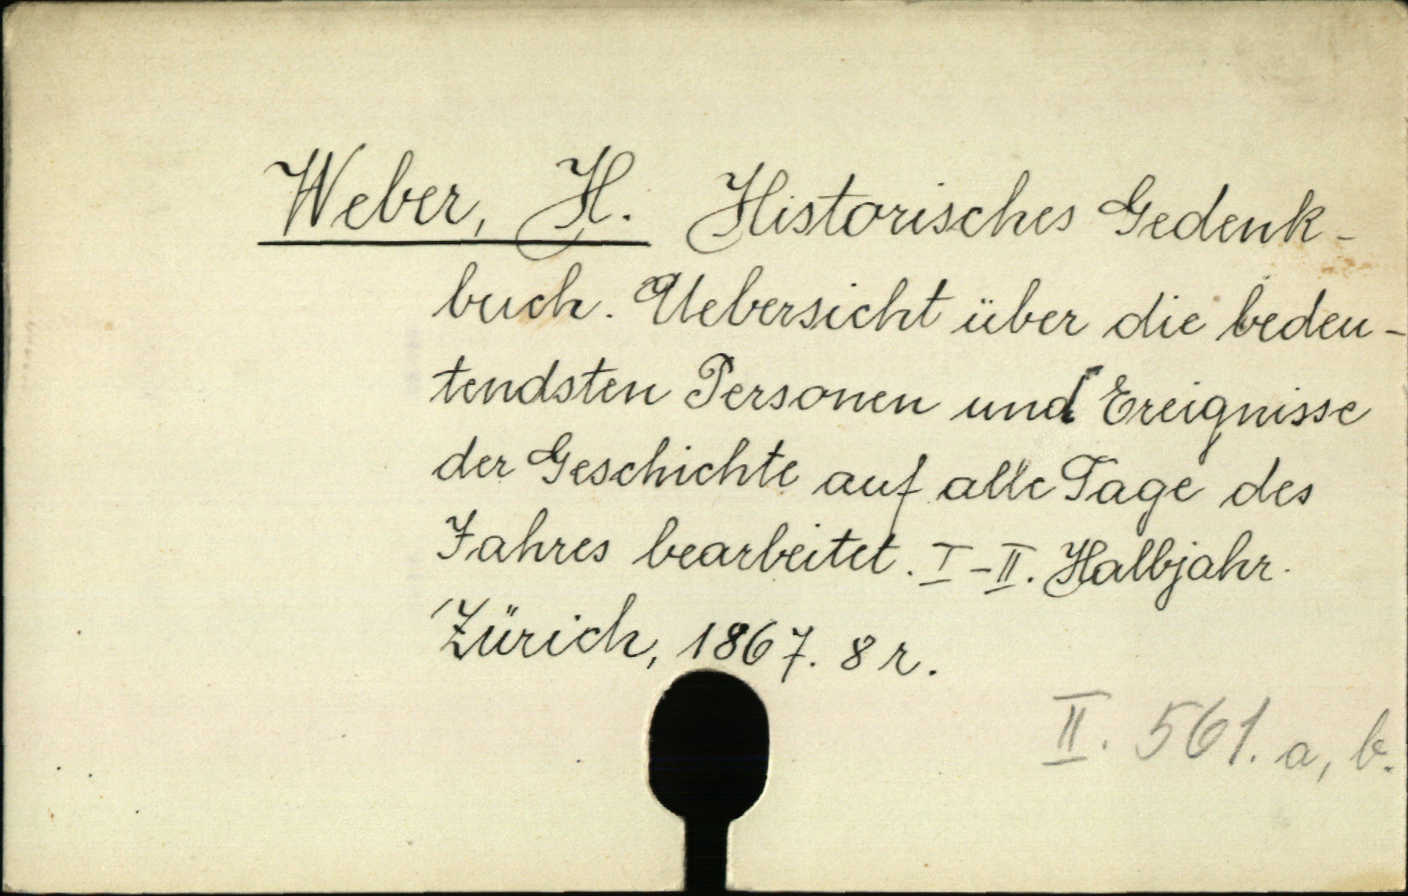 Weber, H. Historisches Gedenk-
buch. Uebersicht über die bedeu-
tendsten Personen und Ereignisse
der Geschichte auf alle Tage des
Jahres bearbeitet. I-II. Halbjahr.
Zürich, 1867. 8 r.
II. 561. a, b.